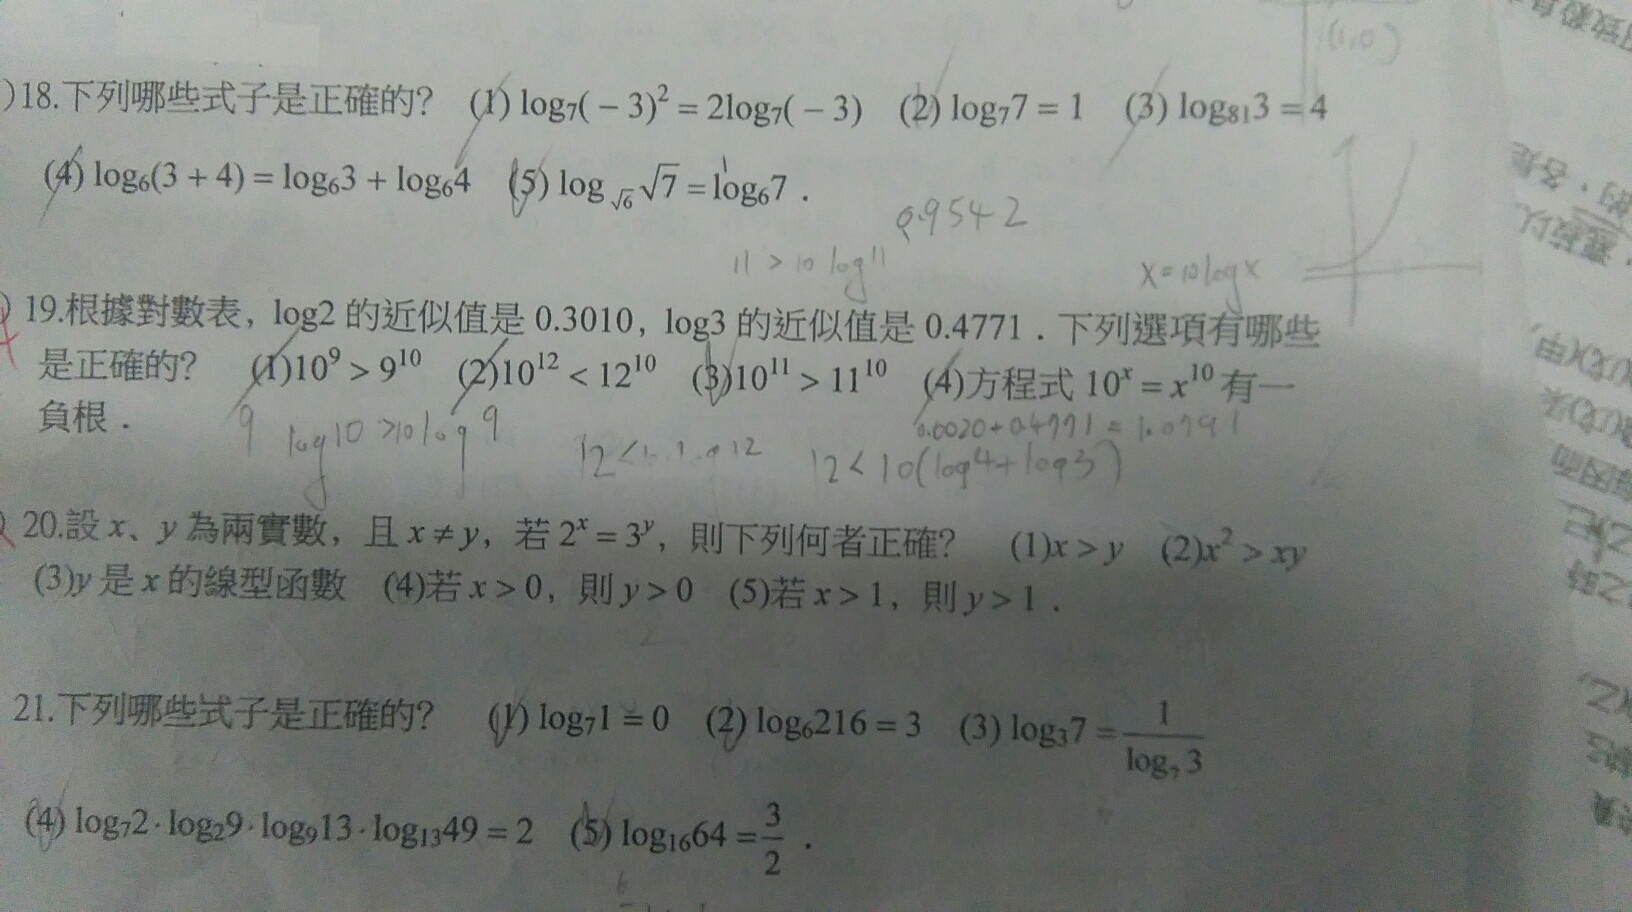 (1,0)
)18.下列哪些式子是正確的? (1) log₇(－3)² = 2log₇(－3) (2) log₇7 = 1 (3) log₈₁3 = 4
(4) log₆(3 + 4) = log₆3 + log₆4 (5) log √6 √7 = log₆7 .
0.9542
11 > 10 log11
x = 10logx
19.根據對數表, log2 的近似值是 0.3010, log3 的近似值是 0.4771 . 下列選項有哪些
是正確的? (1)10⁹ > 9¹⁰ (2)10¹² < 12¹⁰ (3)10¹¹ > 11¹⁰ (4)方程式 10ˣ = x¹⁰ 有一
負根 .
9 log10 >10log9
12<
12
12 < 10(log4+log3)
+0.4771 = 1.0791
20.設 x、y 為兩實數, 且 x ≠ y, 若 2ˣ = 3ʸ, 則下列何者正確? (1)x > y (2)x² > xy
(3)y 是 x 的線型函數 (4)若 x > 0, 則 y > 0 (5)若 x > 1, 則 y > 1 .
21.下列哪些式子是正確的? (1) log₇1 = 0 (2) log₆216 = 3 (3) log₃7 = 1/log₇3
(4) log₇2 · log₂9 · log₉13 · log₁₃49 = 2 (5) log₁₆64 = 3/2 .